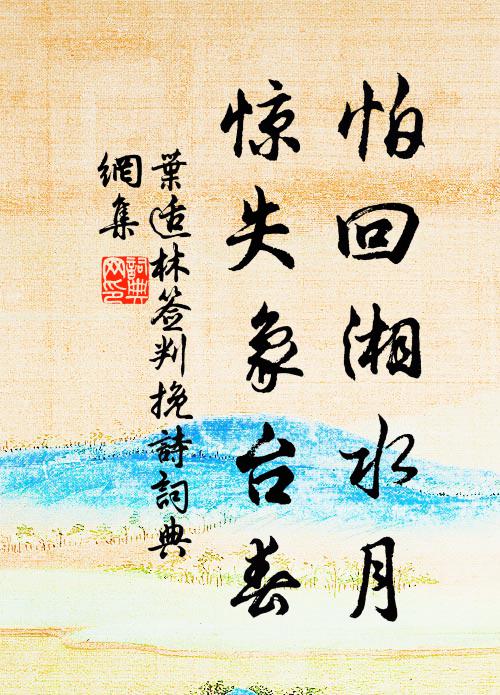 怕回湘水月
惊失象台春
葉适林签判挽詩詞典
網集
詞典網印